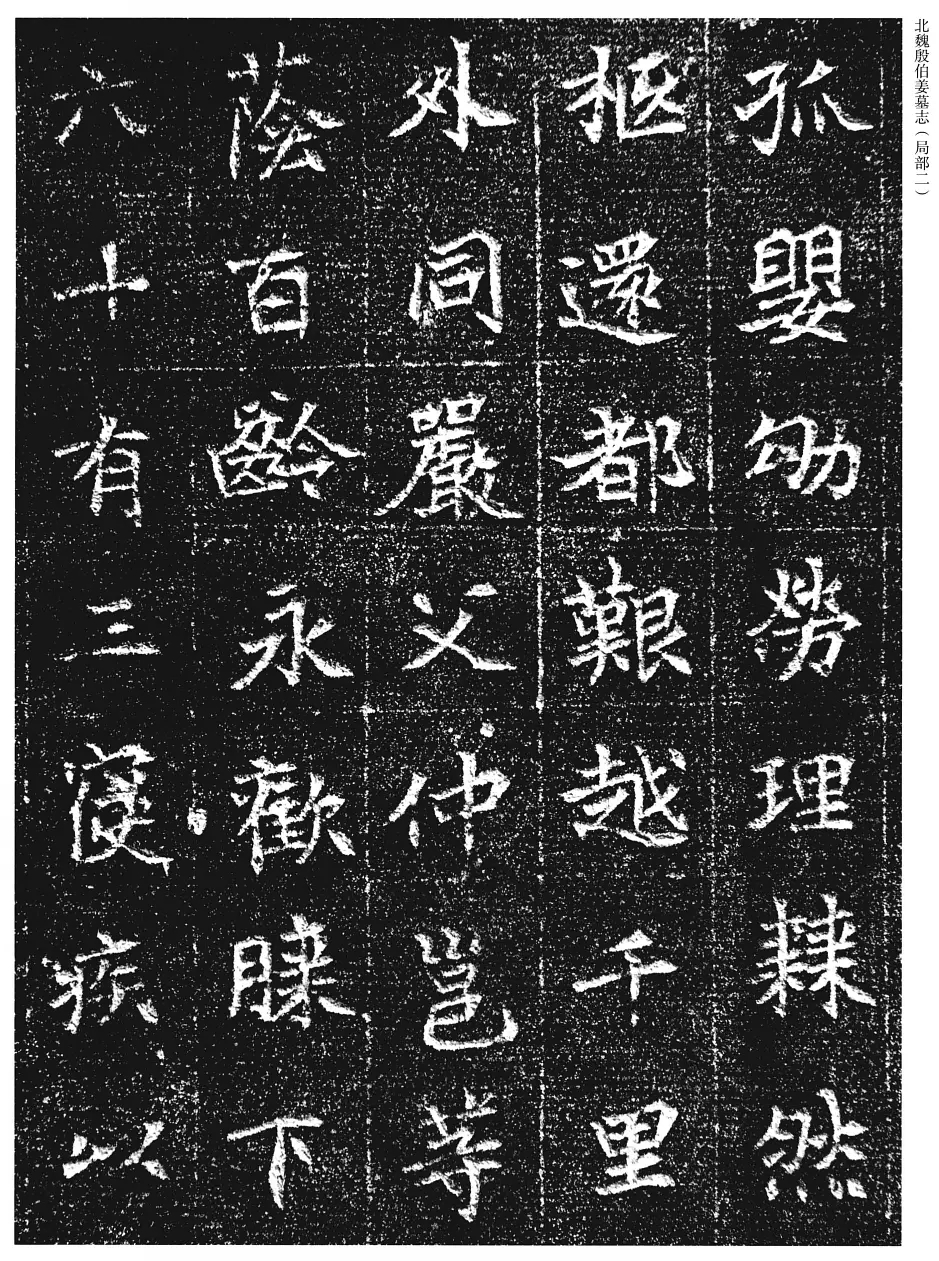 北魏殷伯姜墓志（局部二）
孤嬰幼勞理棘然
柩還都艱越千里
外同嚴父仲邕等
蔭百齡永歡膝下
六十有三寢疾以